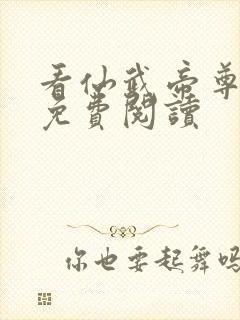 看仙武帝尊
免費閱讀
你也要起舞吗